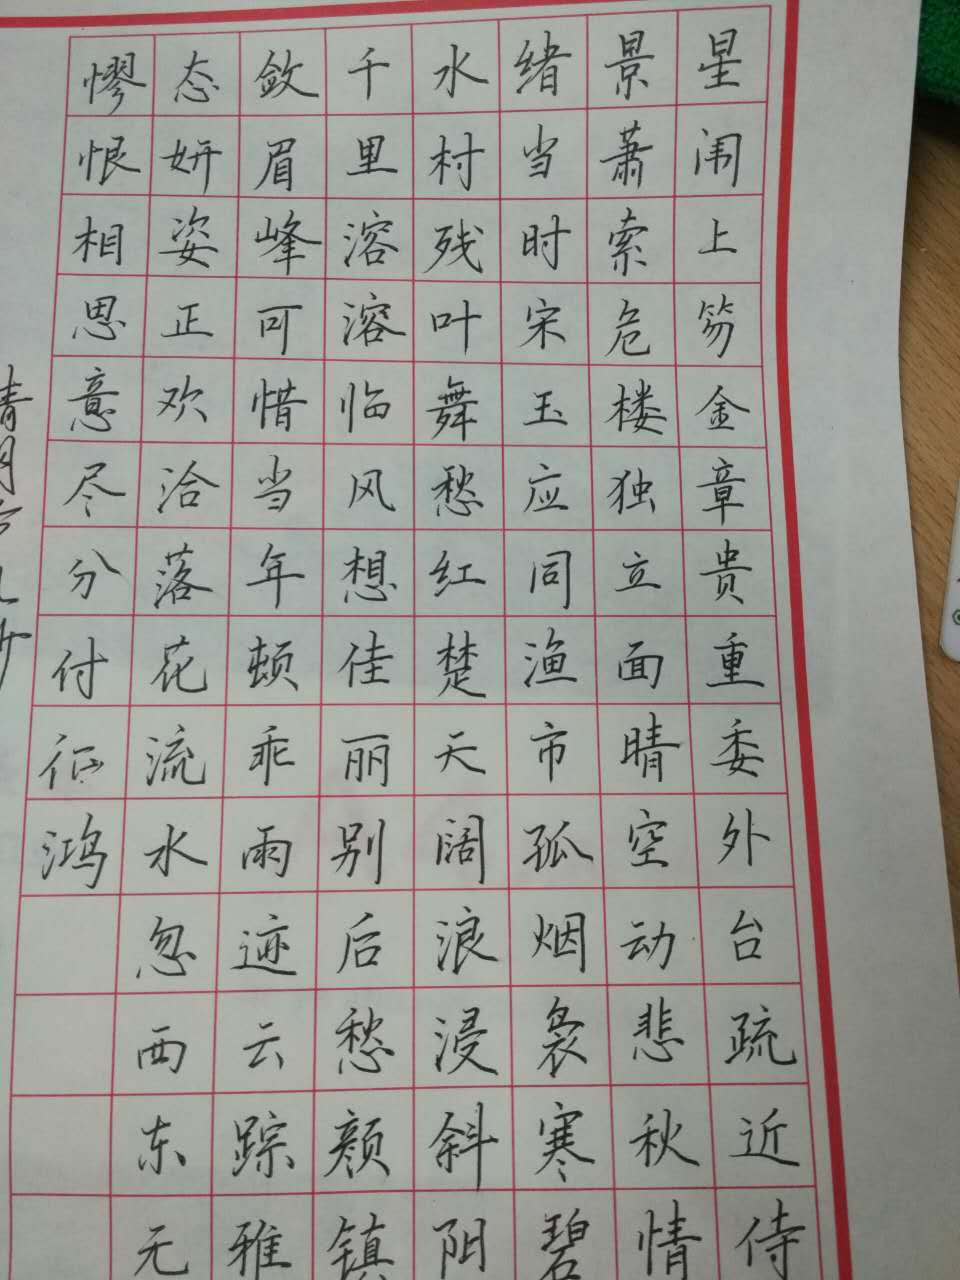 星闱上笏金章贵重委外台疏近侍
景萧索危楼独立面晴空动悲秋情
绪当时宋玉应同渔市孤烟袅寒碧
水村残叶舞愁红楚天阔浪浸斜阳
千里溶溶临风想佳丽别后愁颜镇
敛眉峰可惜当年顿乖雨迹云踪雅
态妍姿正欢洽落花流水忽西东无
憀恨相思意尽分付征鸿